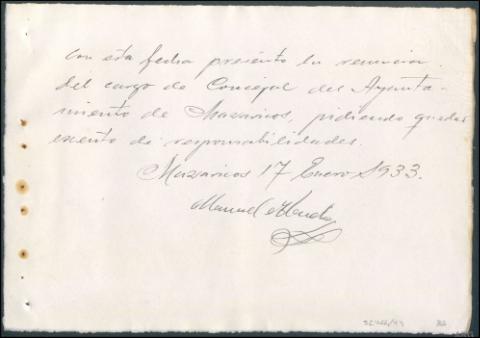 Con esta fecha presento la renuncia
del cargo de Concejal del Ayunta-
miento de Mazaricos, pidiendo quedar
exento de responsabilidades.
Mazaricos 17 Enero 1933.
Manuel